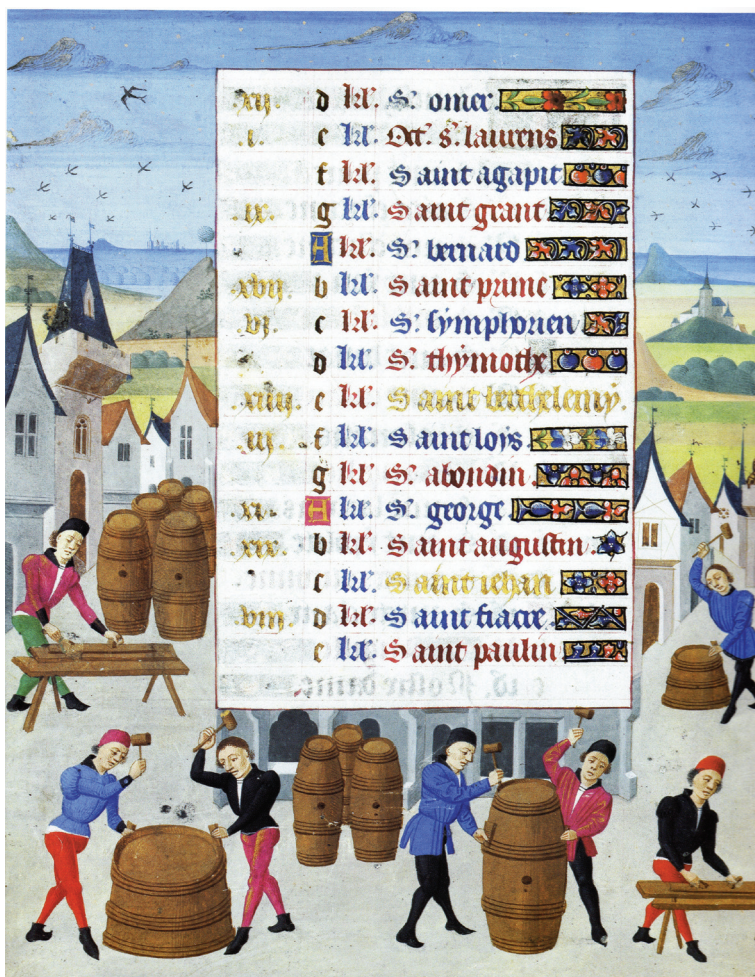 .xij. d kl'. S'. omer.
.i. e kl'. Oct. s. laurens
f kl'. Saint agapit
.ix. g kl'. Saint grant
A kl'. S'. bernard
.xvij. b kl'. Saint prime
.vj. c kl'. S'. symphorien
d kl'. S'. thymothe
.xiiij. e kl'. Saint berthelemy.
.iij. f kl'. Saint loys
g kl'. S'. abondin
.xi. A kl'. S'. george
.xix. b kl'. Saint augustin
c kl'. Saint iehan
.viij. d kl'. Saint fiacre
e kl'. Saint paulin